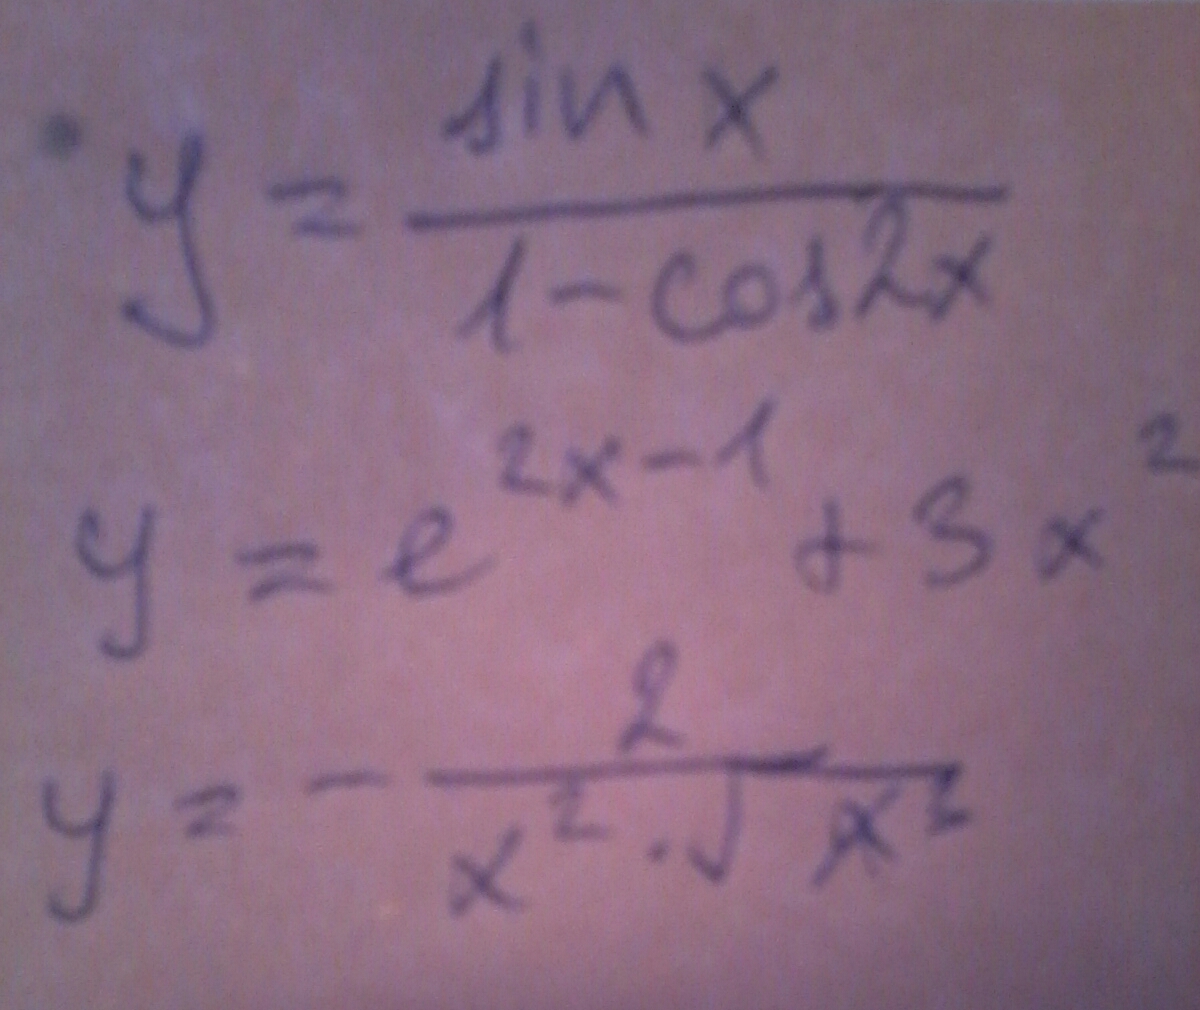 y = sin x / 1 - cos2x
y = e^2x-1 + 3x^2
y = - 2 / x^2 · √x^2